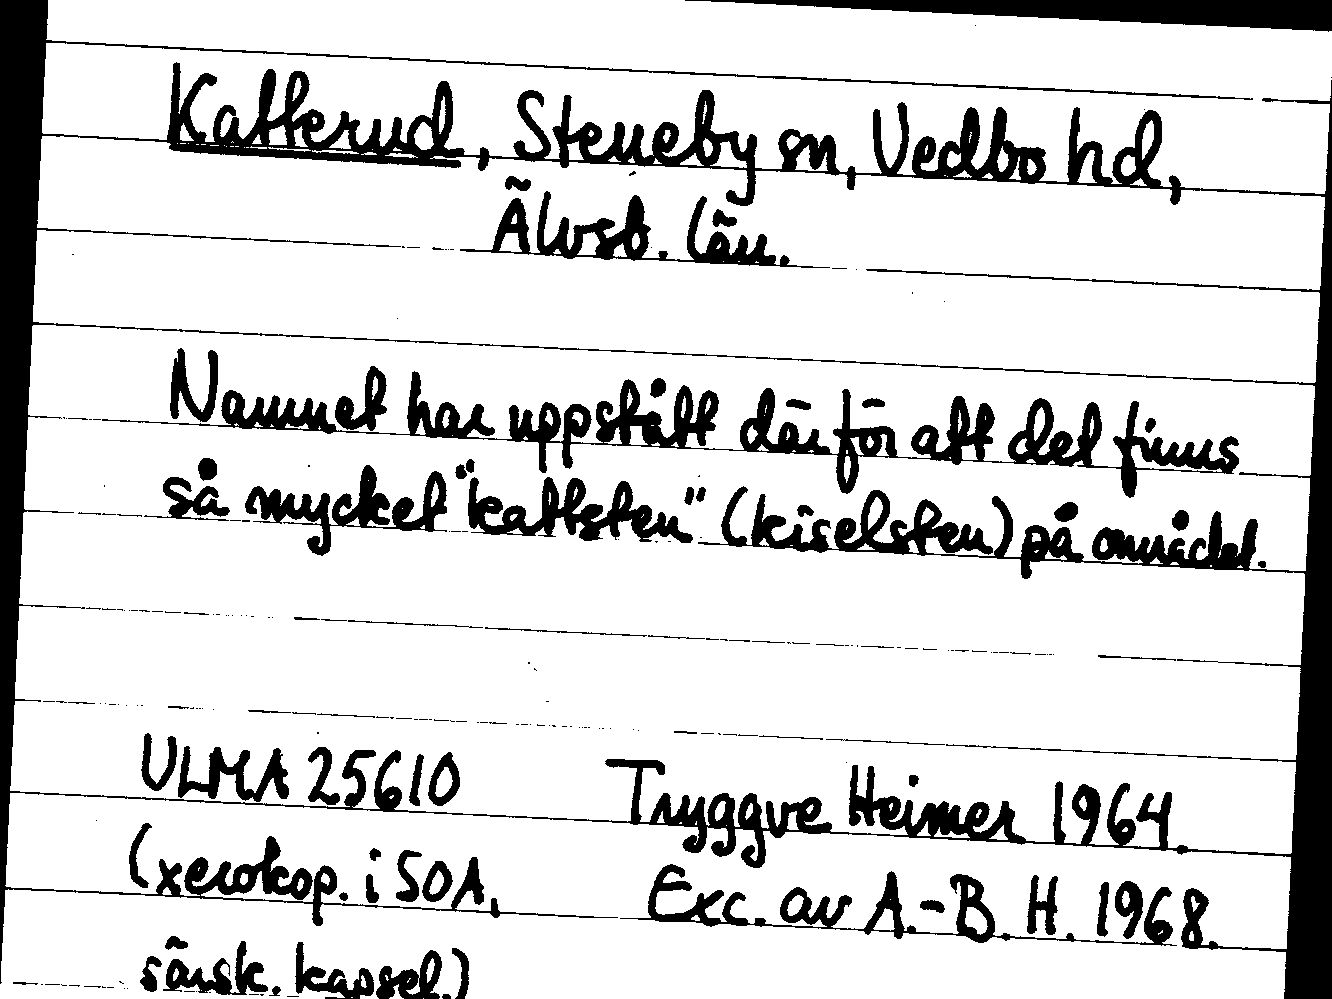 Katterud, Steneby sn, Vedbo hd,
Älvsb. län.
Namnet har uppstått därför att det finns
så mycket "kattsten" (kiselsten) på området.
ULMA 25610 Tryggve Heimer 1964.
(xerokop. i SOA, Exc. av A.-B. H. 1968.
särsk. kapsel.)